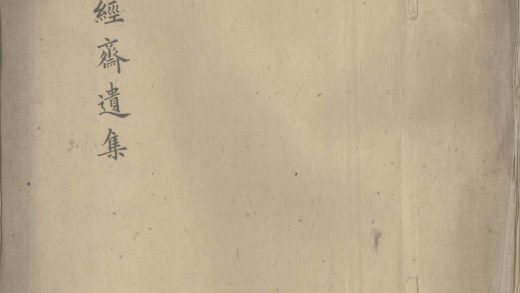 經齋遺集